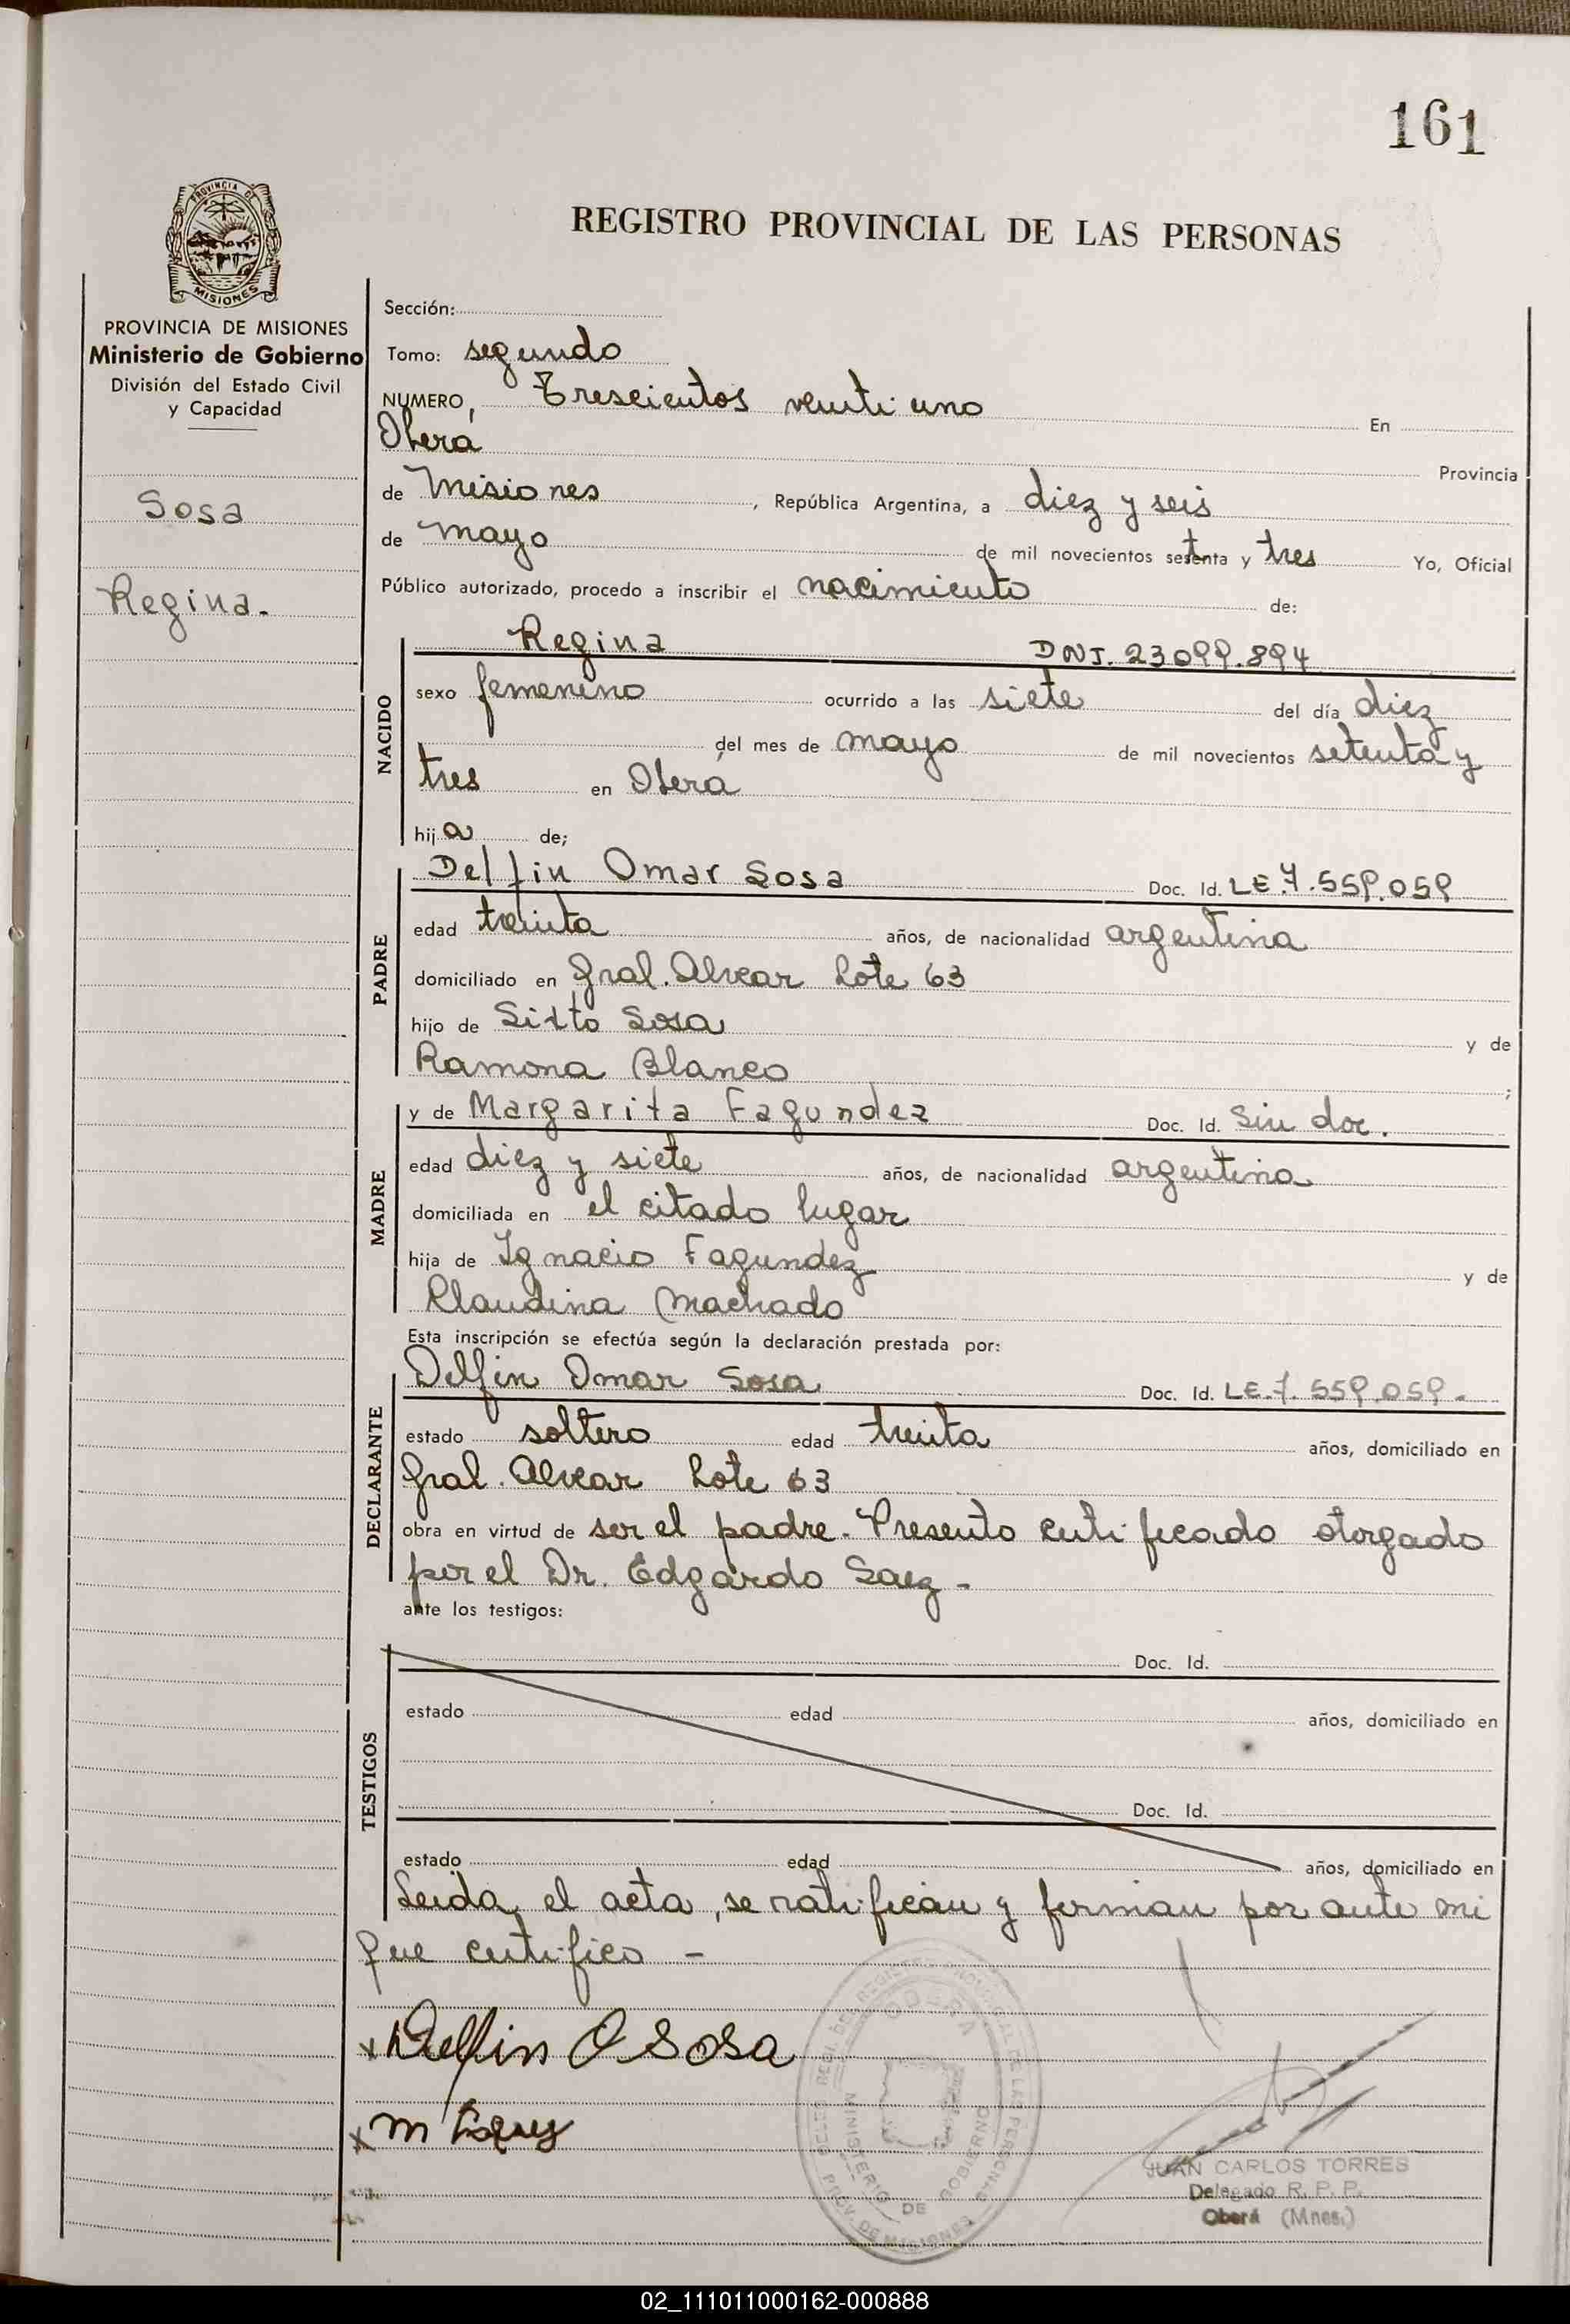 161
PROVINCIA DE
MISIONES
REGISTRO PROVINCIAL DE LAS PERSONAS
PROVINCIA DE MISIONES
Ministerio de Gobierno
División del Estado Civil
y Capacidad
Sosa
Regina.
Sección:
Tomo: segundo
NUMERO, Trescientos veinti uno En
Oberá Provincia
de Misiones, República Argentina, a diez y seis
de mayo de mil novecientos setenta y tres Yo, Oficial
Público autorizado, procedo a inscribir el nacimiento de:
NACIDO
Regina DNI. 23099.894
sexo femenino ocurrido a las siete del día diez
del mes de mayo de mil novecientos setenta y
tres en Oberá
hija de;
PADRE
Delfin Omar Sosa Doc. Id. LE.7.559.059
edad treinta años, de nacionalidad argentina
domiciliado en Gral. Alvear Lote 63
hijo de Sixto Sosa y de
Ramona Blanco;
MADRE
y de Margarita Fagundez Doc. Id. Sin doc.
edad diez y siete años, de nacionalidad argentina
domiciliada en el citado lugar
hija de Ignacio Fagundez y de
Claudina Machado
Esta inscripción se efectúa según la declaración prestada por:
DECLARANTE
Delfin Omar Sosa Doc. Id. LE.7.559.059.-
estado soltero edad treinta años, domiciliado en
Gral. Alvear Lote 63
obra en virtud de ser el padre. Presento certificado otorgado
por el Dr. Edgardo Saez -
ante los testigos:
TESTIGOS
Doc. Id.
estado edad años, domiciliado en
Doc. Id.
estado edad años, domiciliado en
Leida el acta, se ratifican y firman por ante mi
que certifico -
x Delfin O Sosa
x m
OBERA
MINISTERIO DE GOBIERNO
PROV. DE MISIONES
JUAN CARLOS TORRES
Delegado R. P. P.
Oberá (Mnes.)
02_111011000162-000888